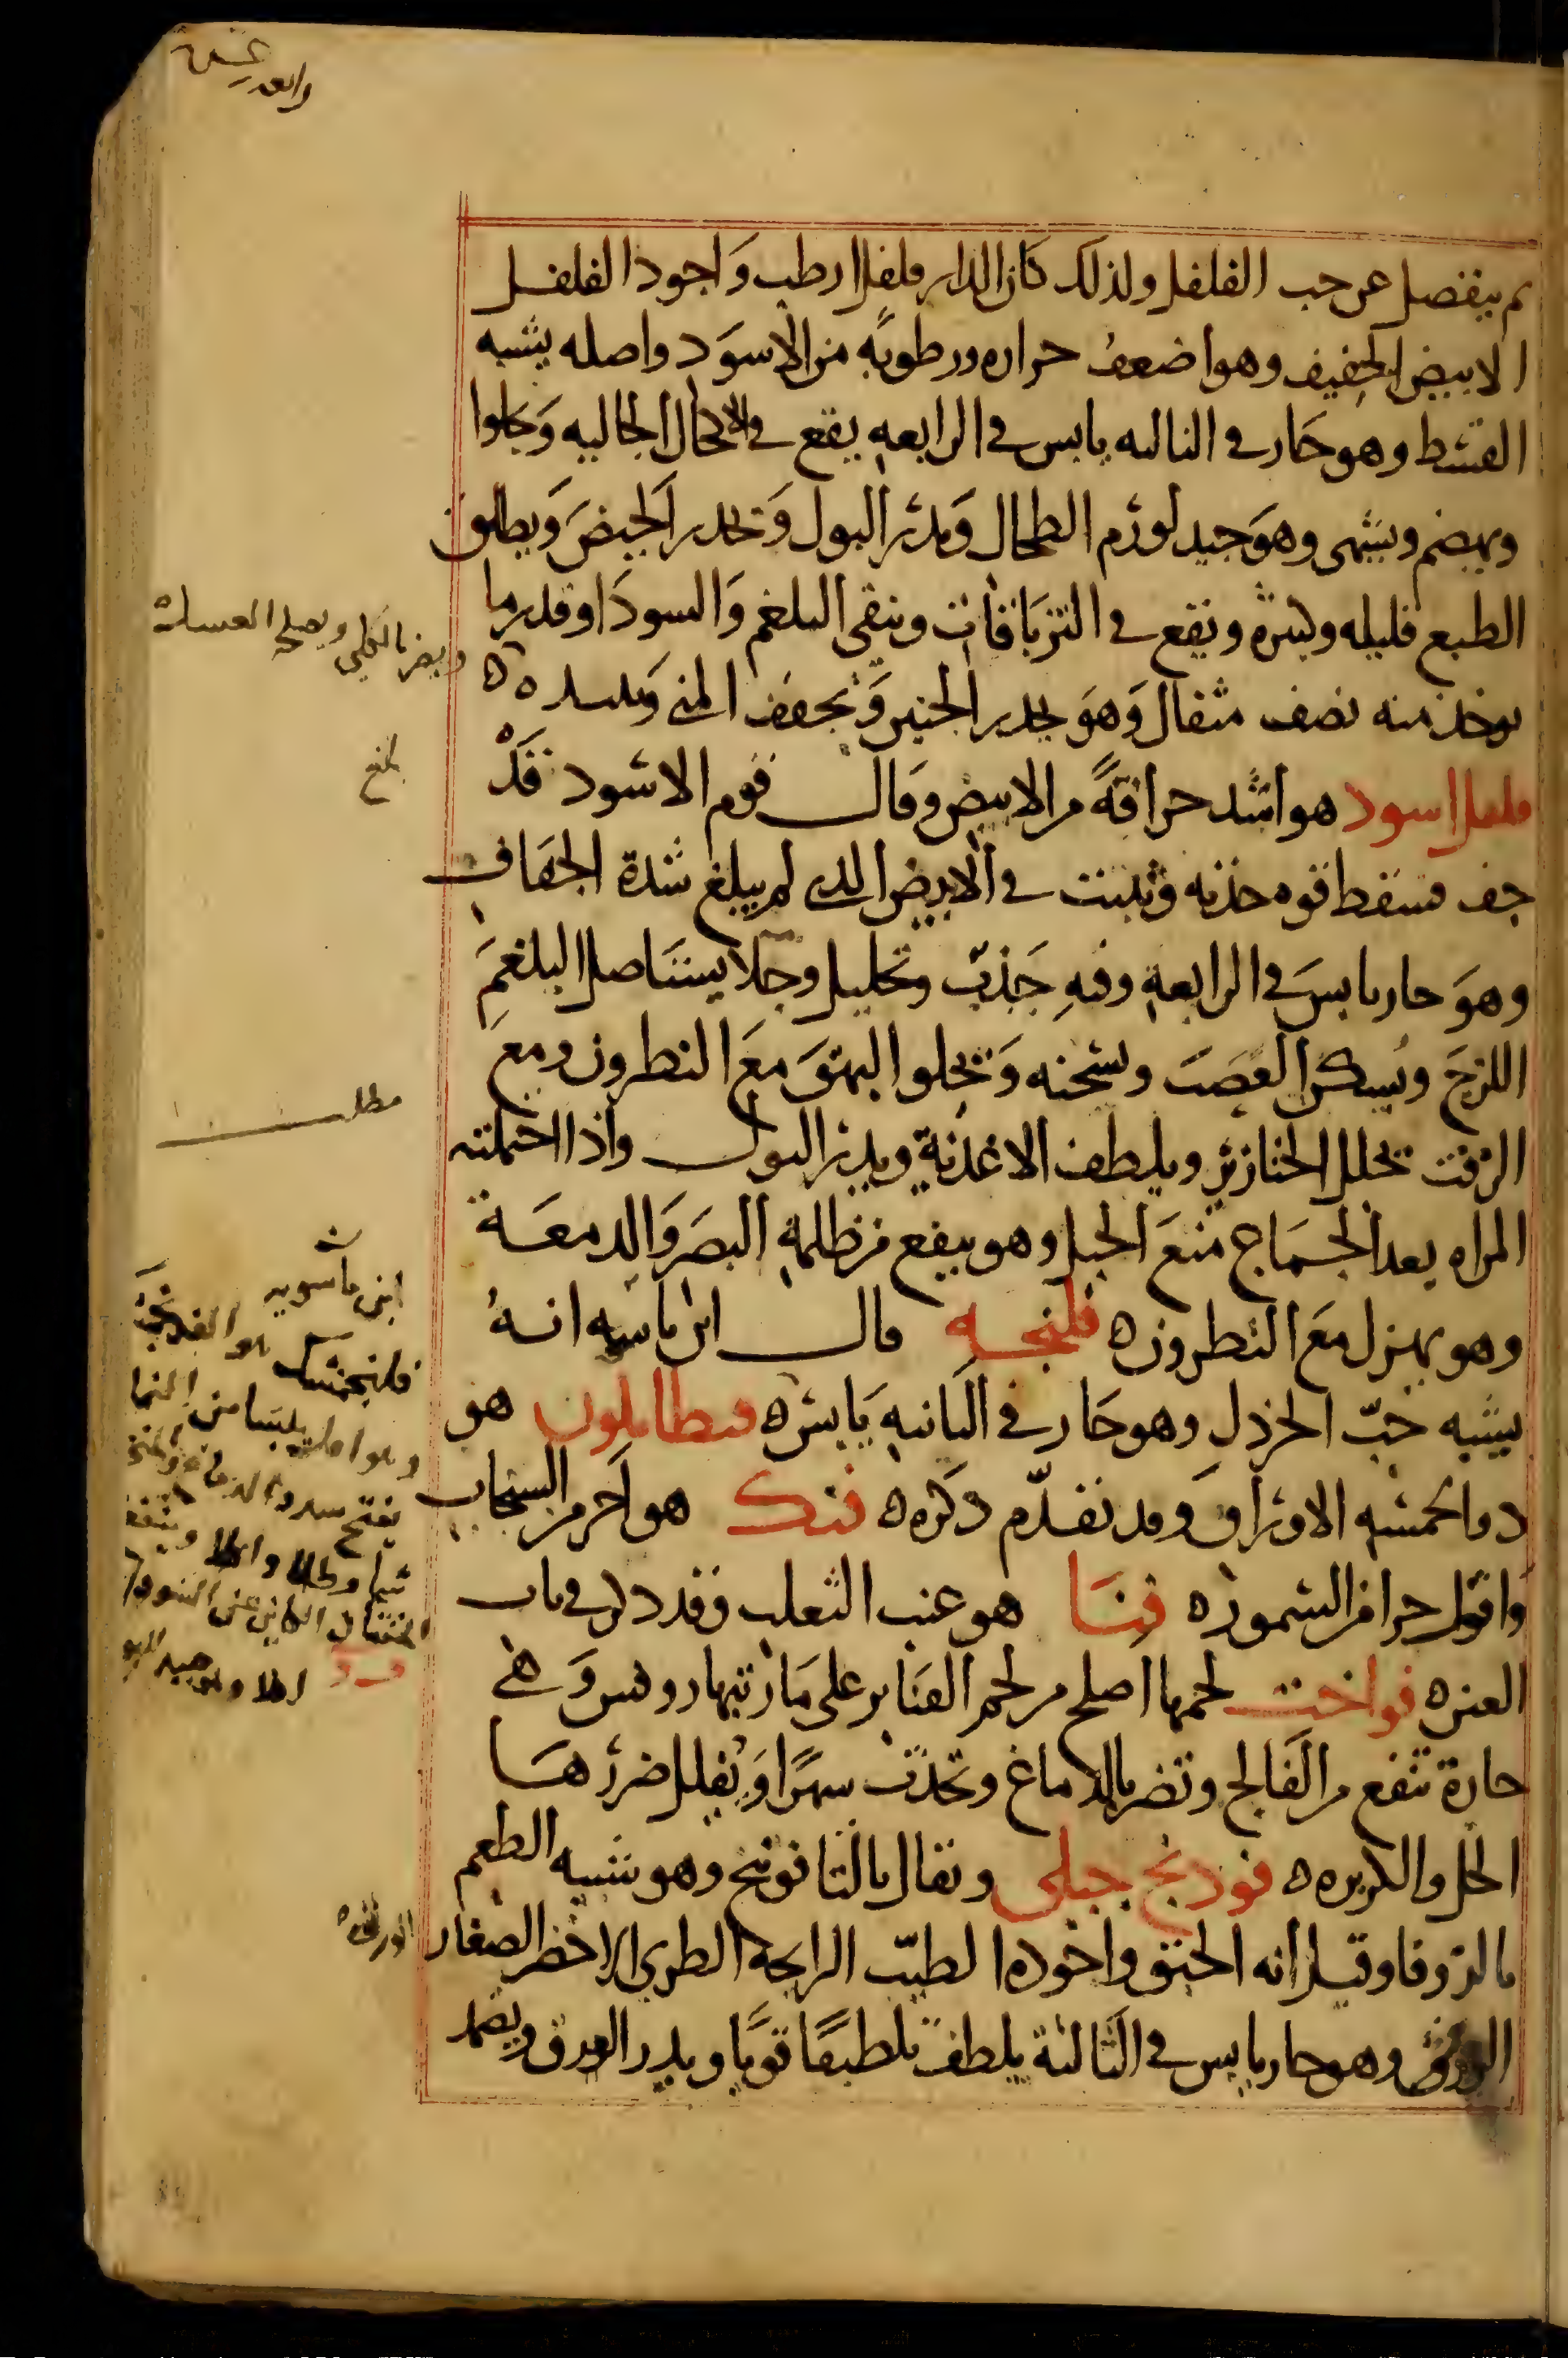 ثم ينفصل عن حب الفلفل ولذلك كان الدار فلفل ارطب وَاجود الفلفل
الابيض الخفيف وهو اضعف حراره ورطوبةٍ من الاسوَد واصله يشبه
القسط وهو حَار في الثالثه يابس في الرابعهِ يقع في الاكحال الجاليه وَيجلوا
ويهضم ويشهى وهوَ جيد لورَم الطحال وَيدرُ البول وَيحدر الحيضَ وَيطلق
الطبع قليله وكثره ويقع في الترياقات وينقى البلغم وَالسودَا وقدر ما
يوخذ منه نصف مثقال وَهوَ يحدر الجنين وَيجفف المنى
فلفل اسود هو اشد حراقةً من الابيض وقال قوم الاسود قَدْ
جف فسقط قوه حذته وثبتت في الابيض الذي لم يبلغ شدة الجفاف
وهوَ حار يابسَ في الرابعهِ وفيهِ جَذبٌ وتحليل وجلا يستاصل البلغمَ
اللزجَ ويُسكن العصَبَ ويسخنه وَيجلوا البهقَ معَ النطرون ومع
الزفت يحلل الخنازيرِ ويلطف الاغذيةِ ويدر البول واذا احتملته
المراه بعد الجمَاع منعَ الحبل وهو ينفع من ظلمهِ البصَر وَالدمعَة
وهو يهزل معَ النطرون ه فلنجه قال ابن ماسه انهُ
يشبه حبّ الخردلِ وهو حَار في الثانيهِ يَابس ه فنطافلون هو
ذو الخمسه الاوراق وقد تقدّم ذكره ه فنك هو احَر من السنجاب
وَاقول حرا من السمور ه فنَا هو عنب الثعلب وقد ذكر في باب
العين ه فواخت لحمها اصلح من لحم القنَابر على مَا زنيهاروس وَهي
حارة تنفع من الفَالج وتضر بالدماغ وتحدث سهرًا وَيقلل ضررهَا
الخل والكزبره ه فودنج جبلى ويقال بالتا فوتنج وهو شبيه الطعم
بالزوفا وقيل انه الحبق واجوده الطيّب الرايحة الطرى الاخضر الصغار
الورق وهو حار يابس في الثالثة يلطف تلطيفًا قويًا ويدر العرق ويضمد
ويضر بالكلى ويصلحه العسل
مطلب
ابن ماسويه
فلنجمشك هو الفلنجه
الورق